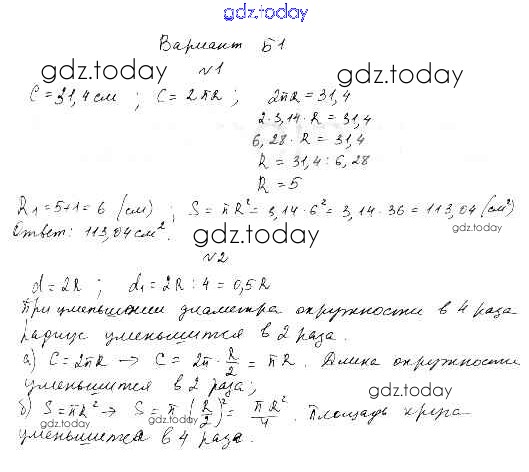 gdz.today
Вариант Б1
gdz.today
№1
gdz.today
C = 31,4 см ; C = 2πR ; 2πR = 31,4
2·3,14·R = 31,4
6,28·R = 31,4
R = 31,4 : 6,28
R = 5
R₁ = 5+1 = 6 (см) ; S = πR² = 3,14·6² = 3,14·36 = 113,04 (см²)
Ответ: 113,04 см².
gdz.today
gdz.today
№2
d = 2R ; d₁ = 2R : 4 = 0,5R
При уменьшении диаметра окружности в 4 раза
радиус уменьшится в 2 раза.
а) C = 2πR → C = 2π · R/2 = πR. Длина окружности
уменьшится в 2 раза;
gdz.today
б) S = πR² → S = π (R/2)² = πR²/4 . Площадь круга
gdz.today
уменьшится в 4 раза.
gdz.today